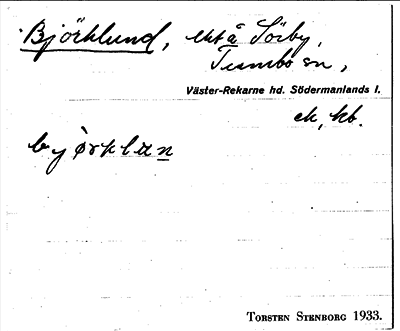 Björklund, utå Sörby,
Tumbo sn,
Väster-Rekarne hd. Södermanlands l.
ek, kb.
bjørklun
TORSTEN STENBORG 1933.